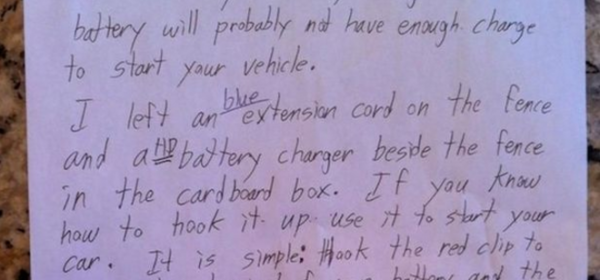 battery will probably not have enough charge
to start your vehicle.
I left an blue extension cord on the fence
and a HD battery charger beside the fence
in the cardboard box. If you know
how to hook it up use it to start your
car. It is simple: Hook the red clip to
and the